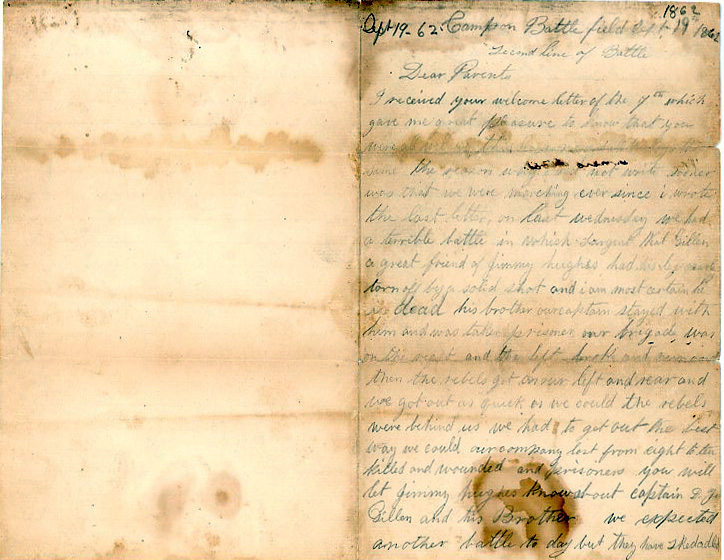 1862
Sept 19-62. Camp on Battle field Sept 19th 1862
Second line of Battle
Dear Parents
I received your welcome letter of the 9th which
gave me great pleasure to know that you
were all well as this
same the reason why i did not write sooner
was that we were marching ever since i wrote
the last letter, on last wednesday we had
a terrible battle in which Sargent Mat Gillen
a great friend of Jimmy hughes had his leg
torn off by a solid shot and i am most certain he
is dead his brother our captain stayed with
him and was taken prisoner our brigade was
on the and the left broke and
then the rebels got on our left and rear and
we got out as quick as we could the rebels
were behind us we had to get out the best
way we could our company lost from eight to ten
killed and wounded and prisoners you will
let Jimmy hughes know about captain
Gillen and his Brother we expected
another battle to day but they have skedadled